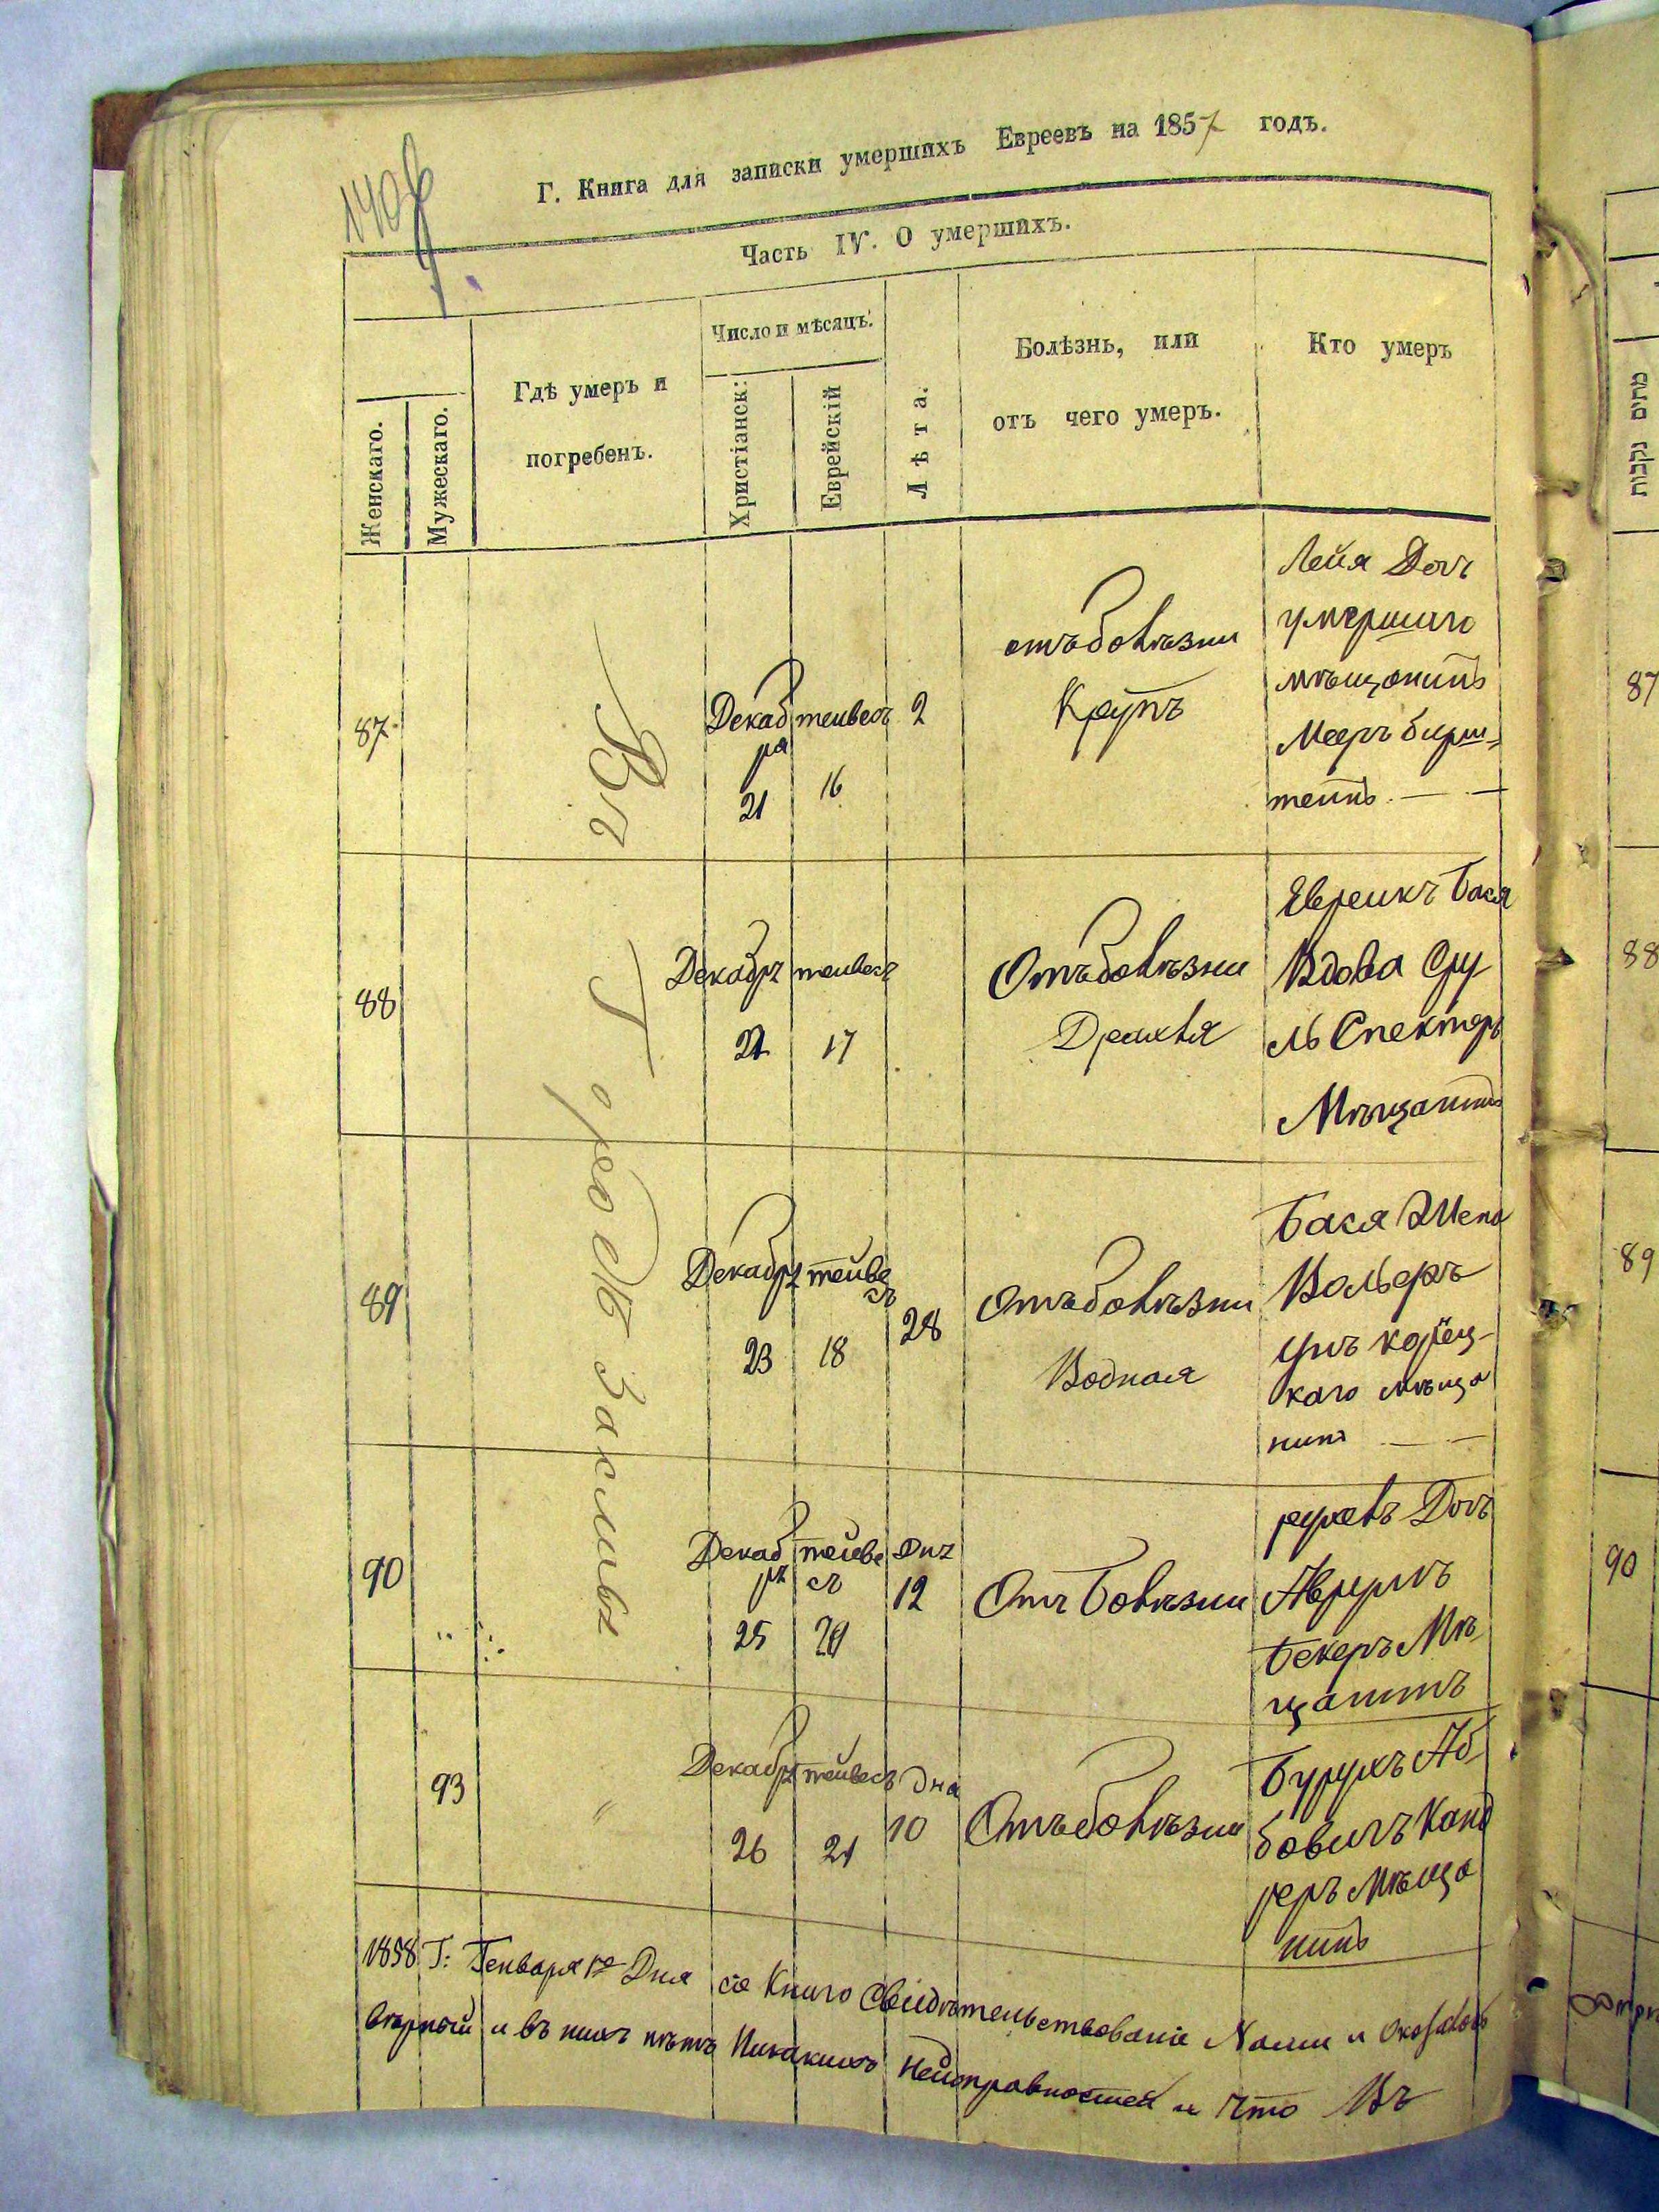 Г. Книга для записки умершихъ Евреевъ на 1857 годъ.
Часть IV. О умершихъ.
Женскаго.
Мужескаго.
Гдѣ умеръ и
погребенъ.
Число и мѣсяцъ.
Христіанск:
Еврейскій
Лѣта.
Болѣзнь, или
отъ чего умеръ.
Кто умеръ
מתים נקבות
Въ Городѣ Заславѣ
87
Декаб
ря
21
тейвесъ
16
2
отъ болѣзни
Крупъ
Лейя Дочъ
умершаго
мѣщанинъ
Мееръ Бирш-
тейнъ
87
88
Декабръ
22
тейвесъ
17
Отъ болѣзни
Евреикъ Бася
Вдова Сру
ль Спекторъ
Мѣщанинъ
88
89
Декабръ
23
тейве
съ
18
28
Отъ болѣзни
Водная
Бася Жена
Вольеръ
корец-
каго мѣща
нина
89
90
Декаб
ръ
25
тейве
съ
20
Днъ
12
Отъ Болѣзни
Дочъ
Аврумъ
Бекеръ Мѣ
щанинъ
90
93
Декабръ
26
тейвесъ
21
дня
10
Отъ болѣзни
Бурухъ
бовичъ Канд
леръ Мѣща
нинъ
1858 Г: Генваря 1го Дня сіе Книго Свидѣтельствованіе Нами и
вѣрной и въ нихъ нѣтъ Никакихъ неисправностей и что Въ